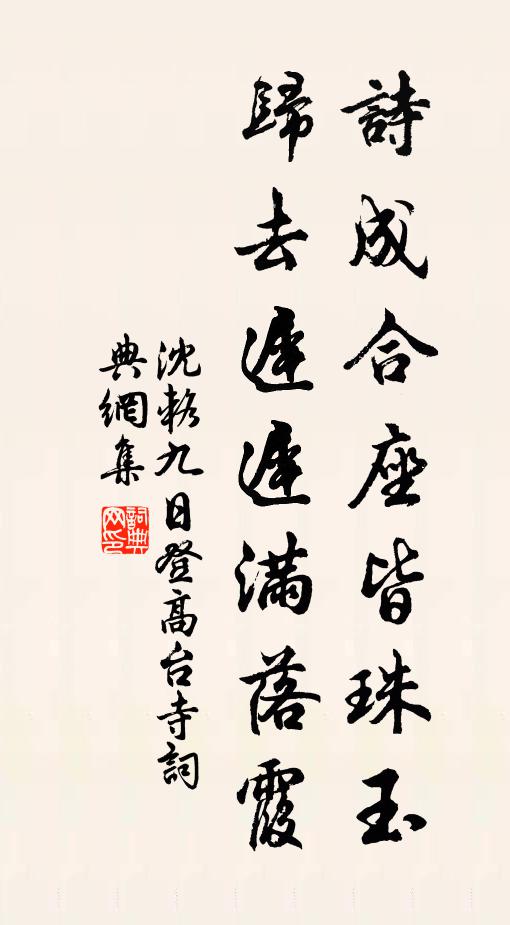 詩成合座皆珠玉
歸去遲遲滿落霞
沈輅九日登高台寺詞
典網集
詞典網印